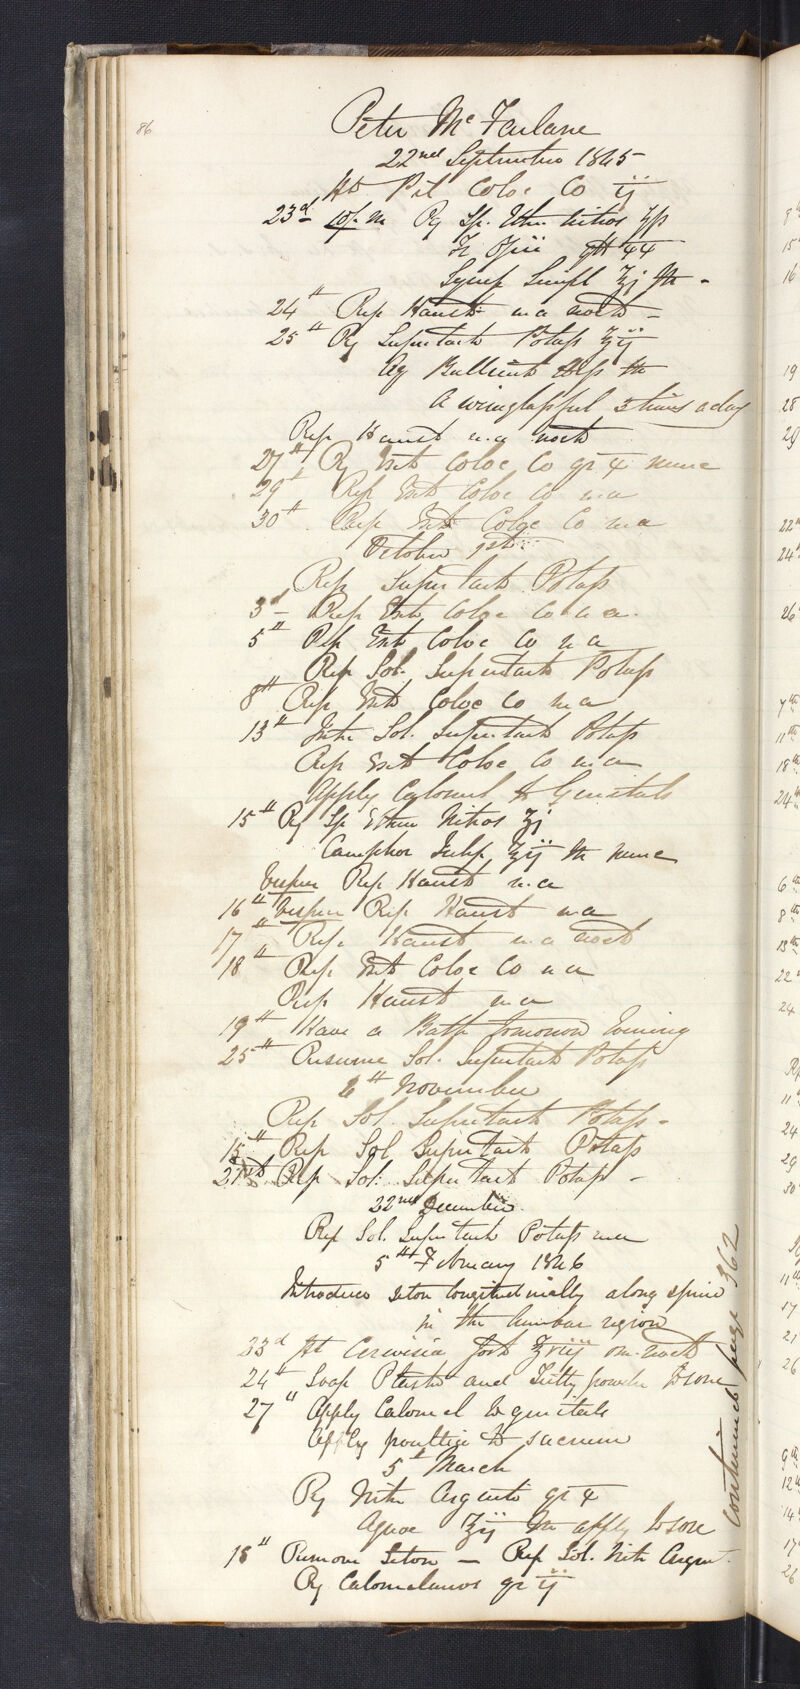 86
Peter McFarlane
22nd September 1845
Ht Pil Coloc Co ij
23d 10 p.m Rx Sp. Ether Nitros ʒſs
Tr Opii gtt xx
Syrup Simpl ʒj M -
24th Rep Haust u.a nocte -
25th Rx Supertart Potass ʒij
Aq Bullient
A wineglassful 3 times a day
Rep Haust u.a nocte
27th Rx Ext Coloc Co gr x nunc
29th Rep Ext Coloc Co u a
30th Rep Ext Coloc Co u a
October 1st
Rep Supertart Potass
3d - Rep Ext Coloc Co u a.
5th Rep Ext Coloc Co u a
Rep Sol. Supertart Potass
8th Rep Ext Coloc Co u a
13th Inter Sol. Supertart Potass
Rep Ext Coloc Co u a
Apply Calomel to Genitals
15th Rx Sp Ether Nitros ʒj
Camphor Julep ʒij M nunc
Vesper Rep Haust u.a
16th Vesper Rep Haust u a
17th " Rep. Haust u.a nocte
18th Rep. Ext Coloc Co u a
Rep Haust u a
19th Have a Bath tomorrow Evening
25th Resume Sol. Supertart Potass
6th November
Rep Sol. Supertart Potass -
15th Rep Sol Supertart Potass
21st Rep Sol: Supertart Potass -
22nd December
Rep Sol. Supertart Potass u a
5th February 1846
Introduce Seton longitudinally along spine
in the lumbar region
23d Ht Cerevisia fort ʒviij om. nocte
24th Soap Plaster and Tutty powder to sore
27th Apply Calomel to genitals
Apply poultice to sacrum
5th March
Rx Nitr Argenti gr x
Aquae ʒij M apply to sore
18th Remove Seton - Rep Sol. Nitr Argent.
Rx Calomelanos gr ij
Continued page 362